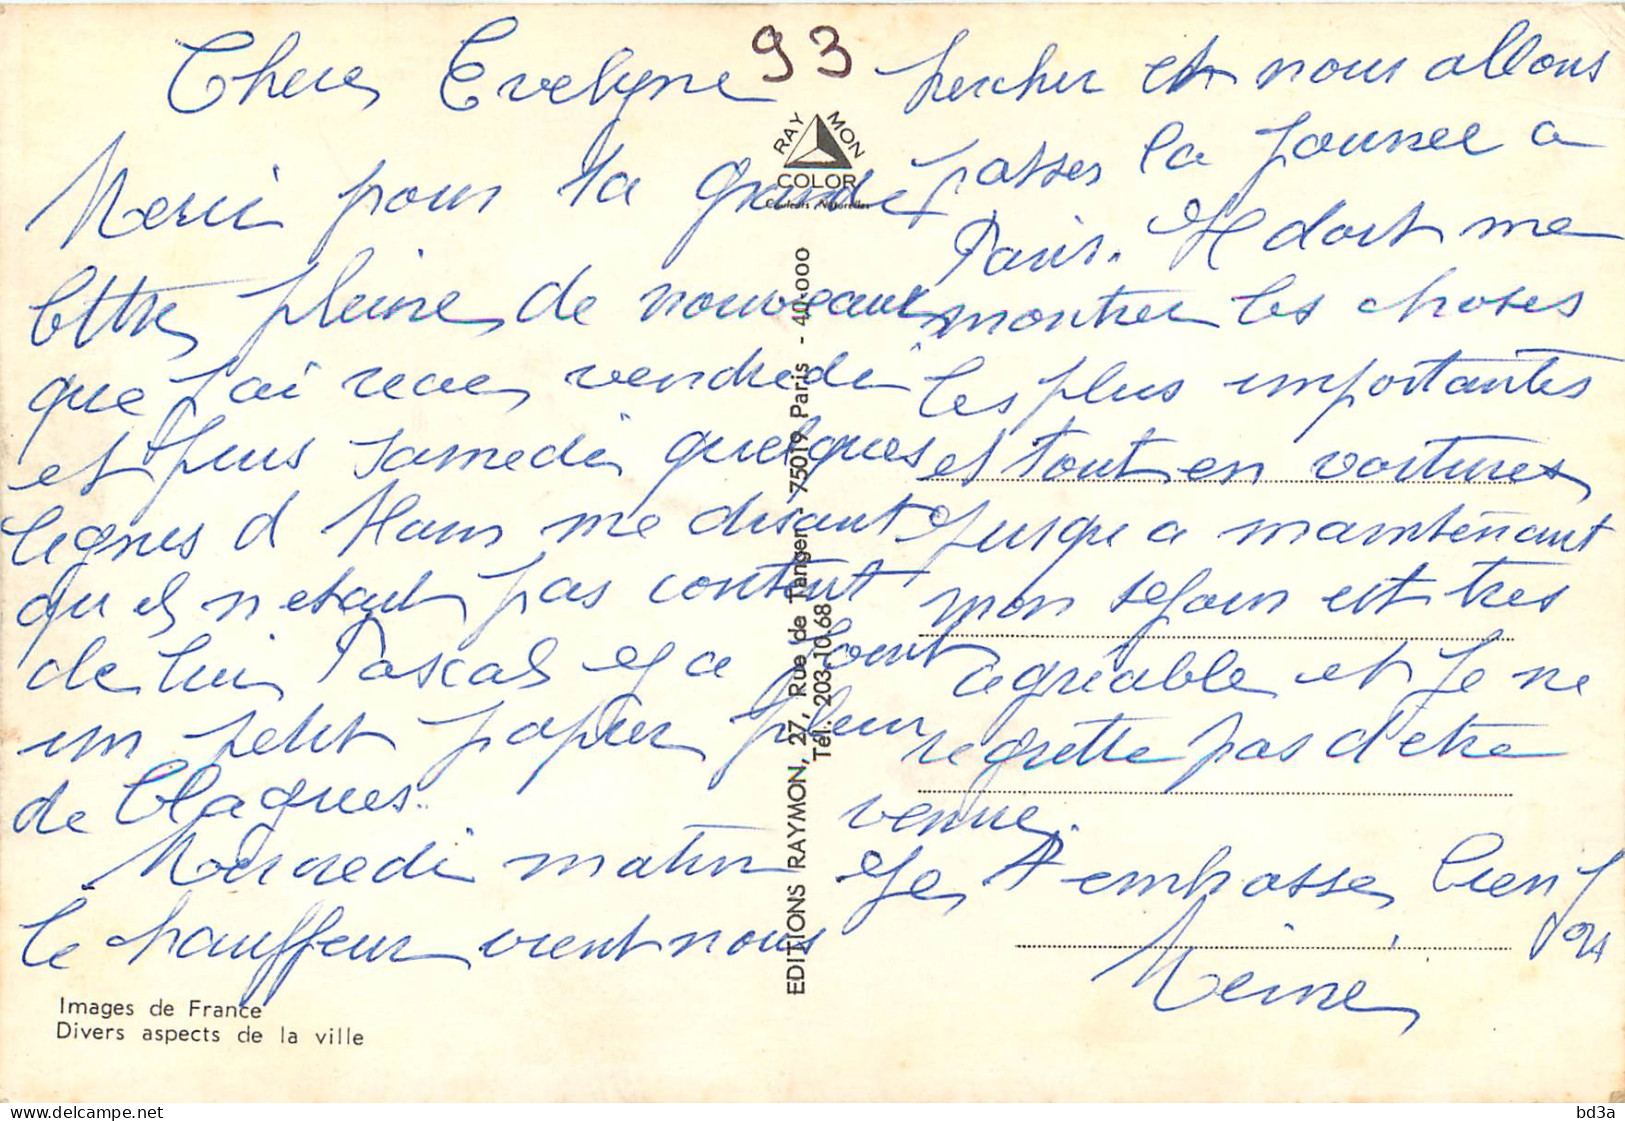 93
Chere Evelyne
Merci pour ta grande
lettre pleine de nouveaux
que j'ai recue vendredi
et puis samedi quelques
lignes d Alain me disant
qu il n etait pas content
de lui Pascal y a joint
un petit papier plein
de blagues.
Mercredi matin
le chauffeur vient nous
chercher et nous allons
passer la journee a
Paris. Il doit me
montrer les choses
les plus importantes
et tout en voiture
Jusqu a maintenant
mon sejour est tres
agréable et je ne
regrette pas d'etre
venue.
Je t'embrasse bien f
ort
RAYMON
COLOR
Couleurs Naturelles
EDITIONS RAYMON, 27, Rue de Tanger - 75019 Paris - 40.000
Tél. 203-10-68
Images de France
Divers aspects de la ville
bd3a